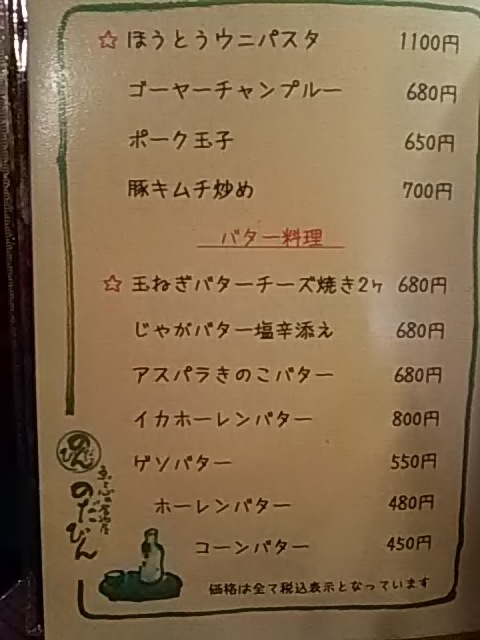 ☆ ほうとうウニパスタ 1100円
ゴーヤーチャンプルー 680円
ポーク玉子 650円
豚キムチ炒め 700円
バター料理
☆ 玉ねぎバターチーズ焼き2ヶ 680円
じゃがバター塩辛添え 680円
アスパラきのこバター 680円
イカホーレンバター 800円
ゲソバター 550円
ホーレンバター 480円
コーンバター 450円
のだびん
価格は全て税込表示となっています